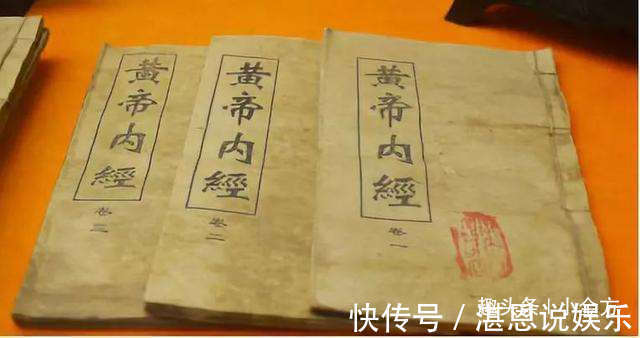 黄帝内經
卷三
黄帝内經
卷二
黄帝内經
卷一
快传号 / 湛恩说娱乐